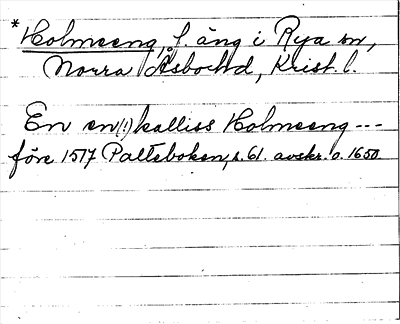 * Holmeeng, f. äng i Rya sn,
Norra Åsbo hd, Krist. l.
En en(!) kalliss Holmeeng ---
före 1517 Palteboken, s. 61. avskr. o. 1650.